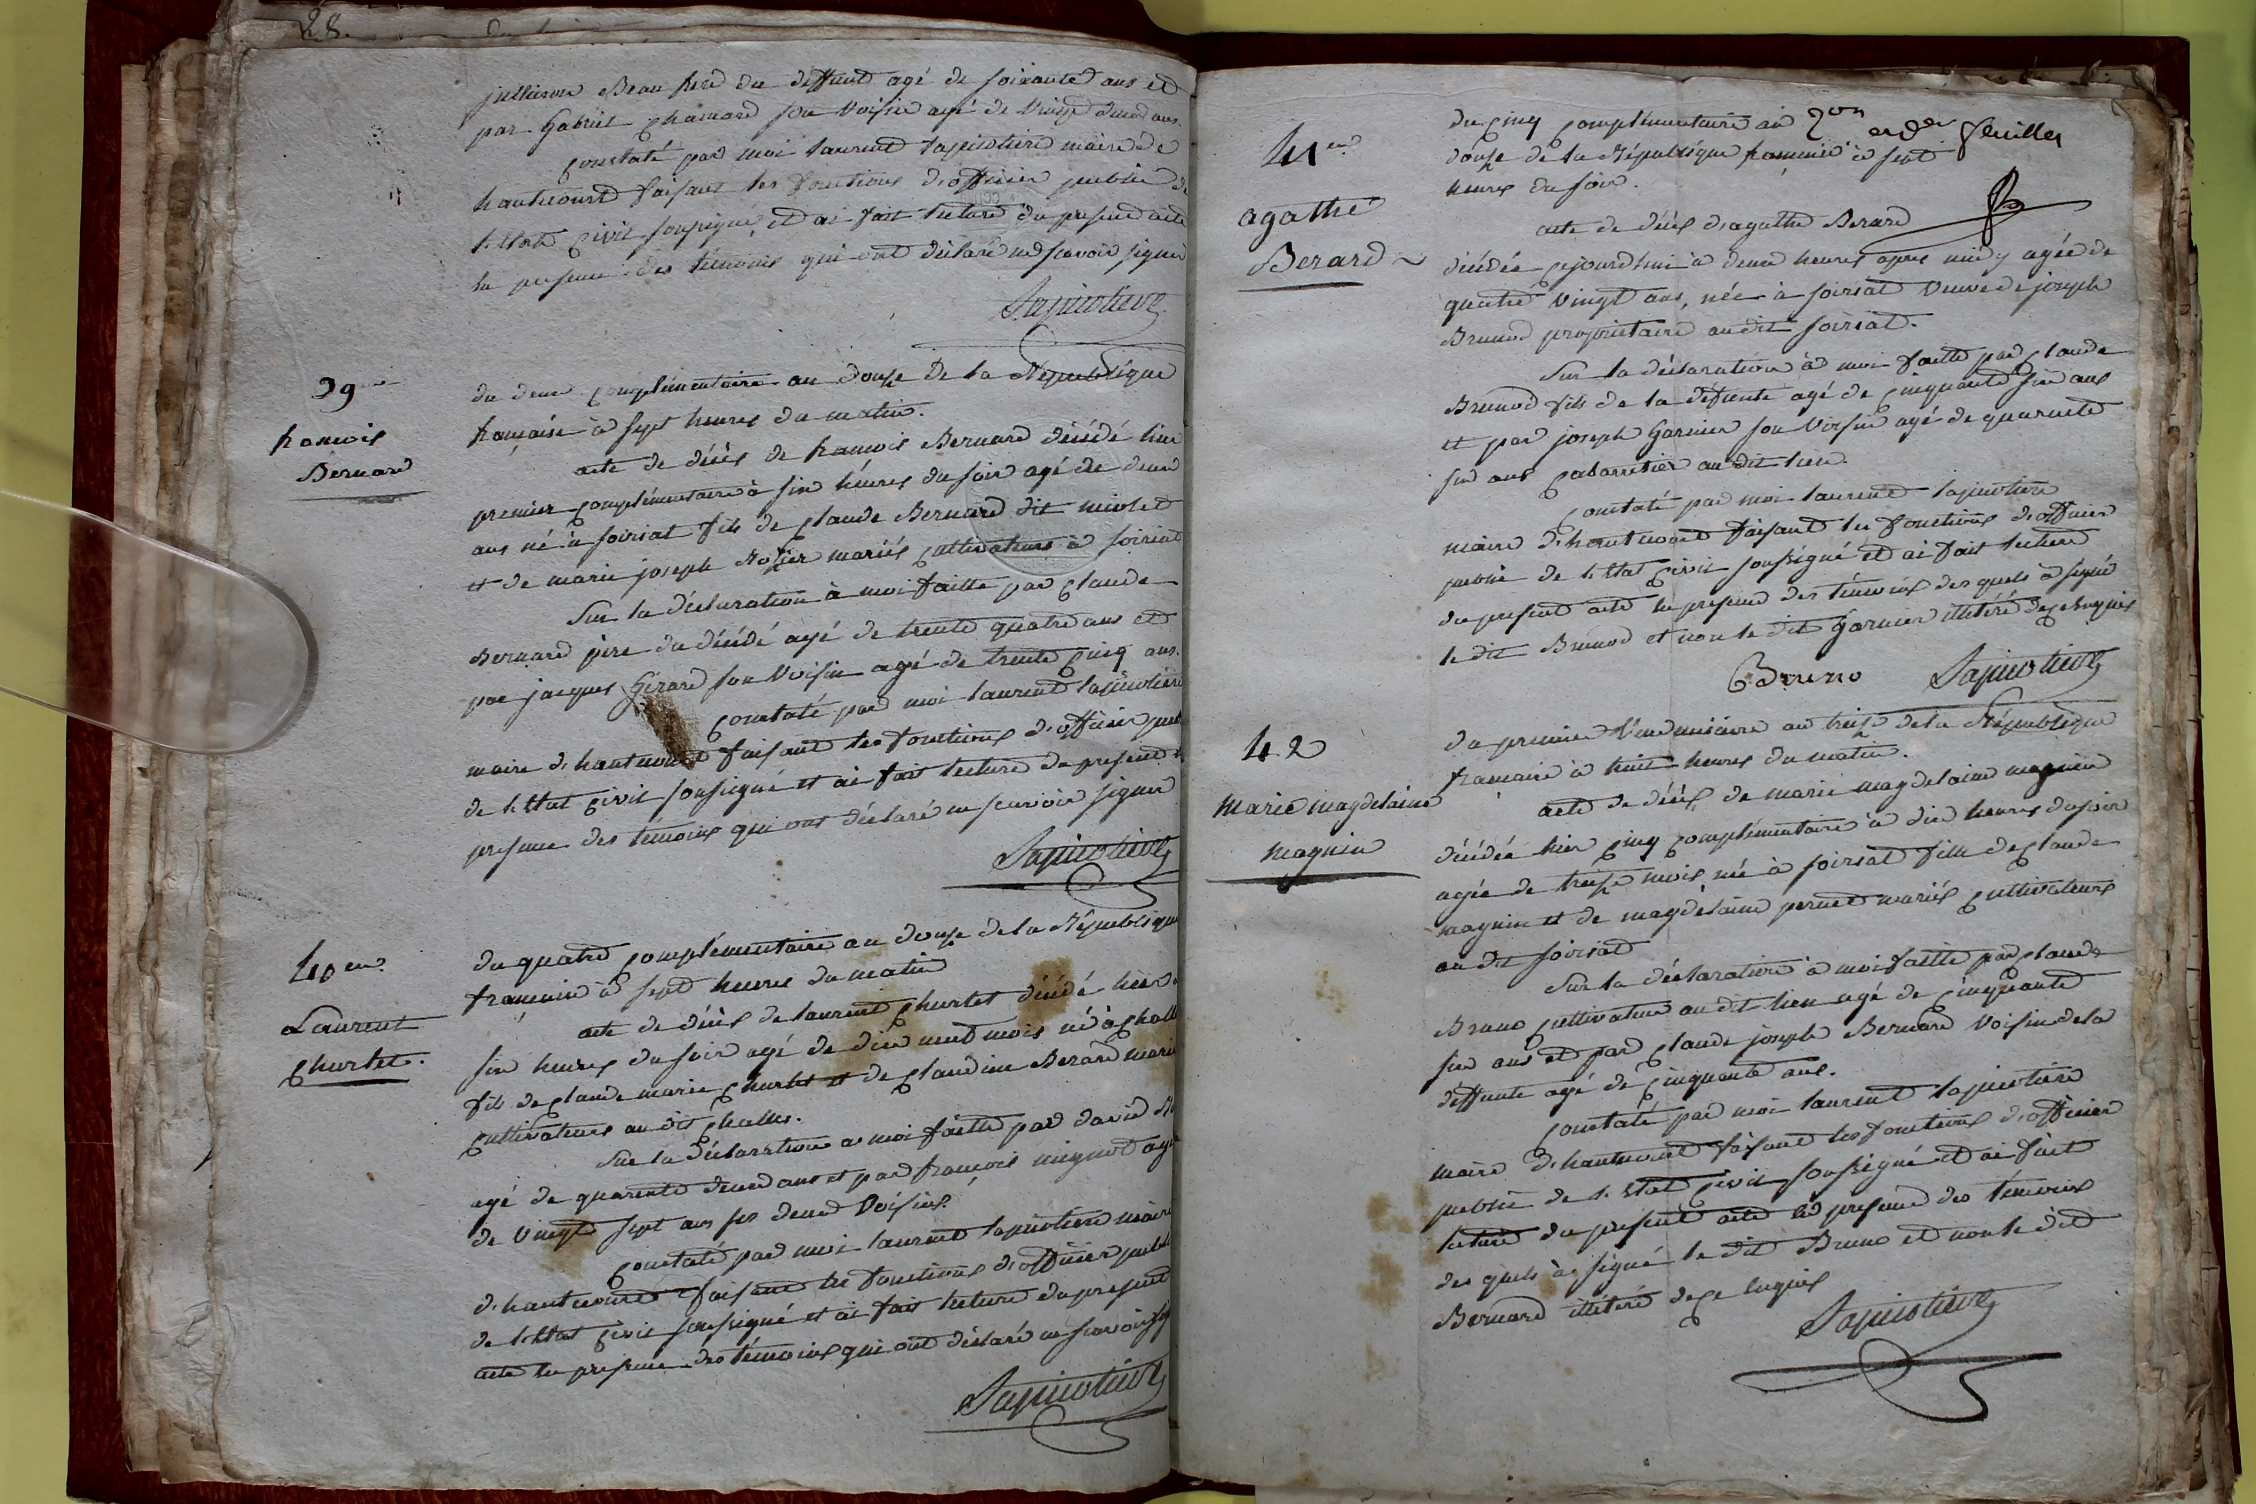 28.
jullieron Beau frere du deffunt agé de soixante ans et
par Gabriel Chanard son voisin agé de trente deux ans.
constaté par moi laurent Lapicotiere maire de
hautecourt faisant les fonctions d'officier public de
l'Etat Civil soussigné, et ai fait lecture du present acte
en presence des témoins qui ont déclaré ne scavoir signer
Lapicotiere
39me
francois
Bernard
du deux complémentaire an douze de la République
française à sept heures du matin.
acte de décès de francois Bernard décédé hier
premier complémentaire à six heures du soir agé de deux
ans né à soiriat fils de Claude Bernard dit nicolet
et de marie joseph Rozier mariés cultivateurs à soiriat
Sur la déclaration à moi faitte par Claude
Bernard père du décédé agé de trente quatre ans et
par jacques Girard son voisin agé de trente cinq ans.
constaté par moi laurent Lapicotiere
maire d'hautecourt faisant les fonctions d'officier publ
de l'Etat Civil soussigné et ai fait lecture du present
presence des témoins qui ont déclaré ne scavoir signer
Lapicotiere
40em
Laurent
Churlet.
du quatre complémentaire an douze de la République
française à sept heures du matin
acte de décès de laurent Churlet décédé hier
six heures du soir agé de dix neuf mois né à Chall
fils de Claude marie Churlet et de Claudine Berard mari
cultivateurs au dit Challes.
Sur la déclaration a moi faitte par david
agé de quarente deux ans et par françois mignot agé
de vingt sept ans ses deux voisins.
constaté par moi laurent lapicotiere maire
d'hautecourt faisant les fonctions d'officier public
de l'Etat Civil soussigné et ai fait lecture du present
acte en presence des témoins qui ont déclaré ne scavoir sig
Lapicotiere
41em
agathe
Berard
du cinq complémentaire an
douze de la République francaise à sept
heures du soir.
2on et der feuillet
acte de décès d'agathe Berard
décédée cejourd'hui à deux heures apres midy agée de
quatre vingt ans, née à soiriat veuve de joseph
Brunod propriétaire audit soiriat.
Sur la déclaration à moi faitte par Claude
Brunod fils de la défunte agé de cinquante six ans
et par joseph Garnier son voisin agé de quarente
six ans cabarretier au dit lieu.
constaté par moi laurent lapicotiere
maire d'hautecourt faisant les fonctions d'officier
public de l'Etat Civil soussigné et ai fait lecture
du present acte en presence des témoins des quels à signé
le dit Brunod et non le dit Garnier illitéré de ce enquis
Bruno Lapicotiere
42
marie magdelaine
magnin
du premier Vendemiaire an treize de la République
francaise à huit heures du matin.
acte de décès de marie magdelaine magnin
décédée hier cinq complémentaire à dix heures du soir
agée de treize mois née à soiriat fille de Claude
magnin et de magdelaine pernet mariés cultivateurs
au dit soiriat
Sur la déclaration à moi faitte par Claude
Bruno cultivateur au dit lieu agé de cinquante
six ans et par Claude joseph Bernard voisin de la
deffunte agé de cinquante ans.
constaté par moi laurent lapicotiere
maire d'hautecourt faisant les fonctions d'officier
public de l'Etat Civil soussigné et ai fait
lecture du present acte en presence des témoins
des quels à signé le dit Bruno et non le dit
Bernard illitéré de ce enquis
Lapicotiere